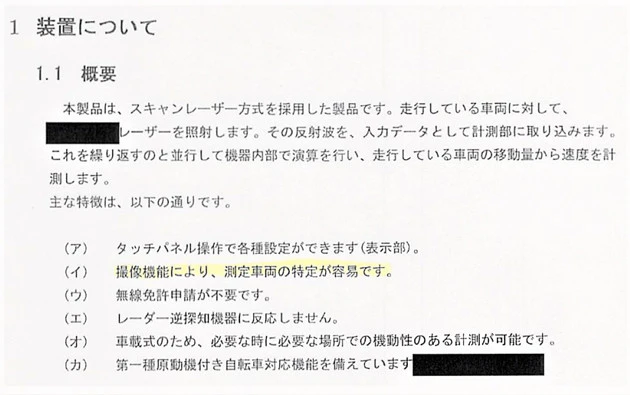 1 装置について
1.1 概要
本製品は、スキャンレーザー方式を採用した製品です。走行している車両に対して、
レーザーを照射します。その反射波を、入力データとして計測部に取り込みます。
これを繰り返すのと並行して機器内部で演算を行い、走行している車両の移動量から速度を計
測します。
主な特徴は、以下の通りです。
(ア) タッチパネル操作で各種設定ができます(表示部)。
(イ) 撮像機能により、測定車両の特定が容易です。
(ウ) 無線免許申請が不要です。
(エ) レーダー逆探知機器に反応しません。
(オ) 車載式のため、必要な時に必要な場所での機動性のある計測が可能です。
(カ) 第一種原動機付き自転車対応機能を備えています